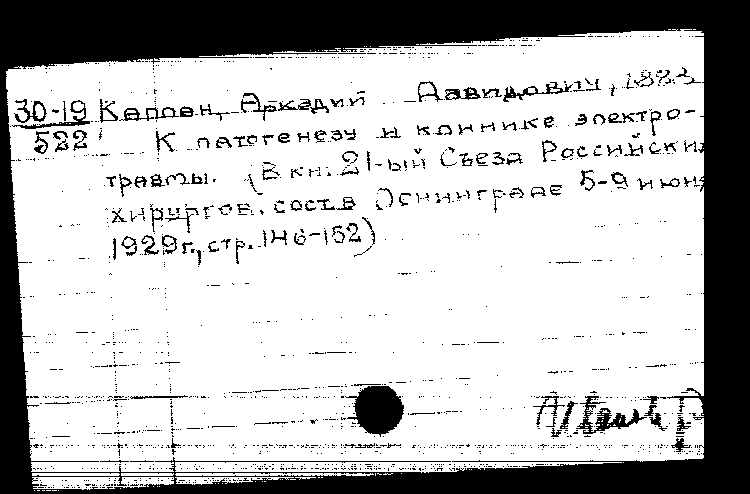 30-19 Каплан, Аркадий Давидович, 1893
522 К патогенезу и клинике электро-
травмы. (В кн: 21-ый Съезд Российских
хирургов, сост. в Ленинграде 5-9 июня
1929 г., стр. 146-152)